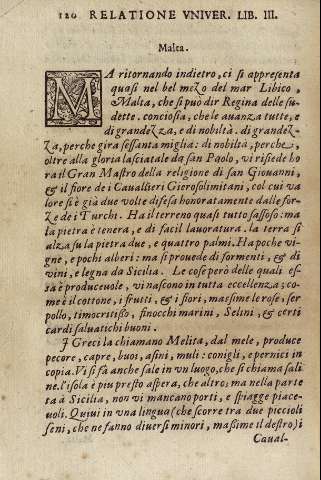 120 RELATIONE VNIVER. LIB. III.
Malta.
MA ritornando indietro, ci si appresenta
quasi nel bel mezo del mar Libico,
Malta, che si può dir Regina delle su-
dette. conciosia, che le auanza tutte, e
di grandezza, e di nobiltà. di grandez-
za, perche gira sessanta miglia: di nobiltà, perche,
oltre alla gloria lasciatale da san Paolo, vi risiede ho
ra il Gran Mastro della religione di san Giouanni,
& il fiore de i Cauallieri Gierosolimitani, col cui va
lore si è già due volte difesa honoratamente dalle for-
Ze de i Turchi. Ha il terreno quasi tutto sassoso: ma
la pietra è tenera, e di facil lauoratura. la terra si
alza su la pietra due, e quattro palmi. Ha poche vi-
gne, e pochi alberi: ma si prouede di formenti, & di
vini, e legna da Sicilia. Le cose però delle quali es-
sa è produceuole, vi nascono in tutta eccellenza; co-
me è il cottone, i frutti, & i fiori, massime le rose, ser
pollo, timocritisso, finocchi marini, Selini, & certi
cardi saluatichi buoni.
I Greci la chiamano Melita, dal mele, produce
pecore, capre, buoi, asini, muli: conigli, e pernici in
copia. Vi si fà anche sale in vn luogo, che si chiama sali
ne. l'isola è piu presto aspera, che altro; ma nella parte
ta à Sicilia, non vi mancano porti, e spiagge piace-
uoli. Quiui in vna lingua (che scorre tra due piccioli
seni, che ne fanno diuersi minori, massime il destro) i
Caual-